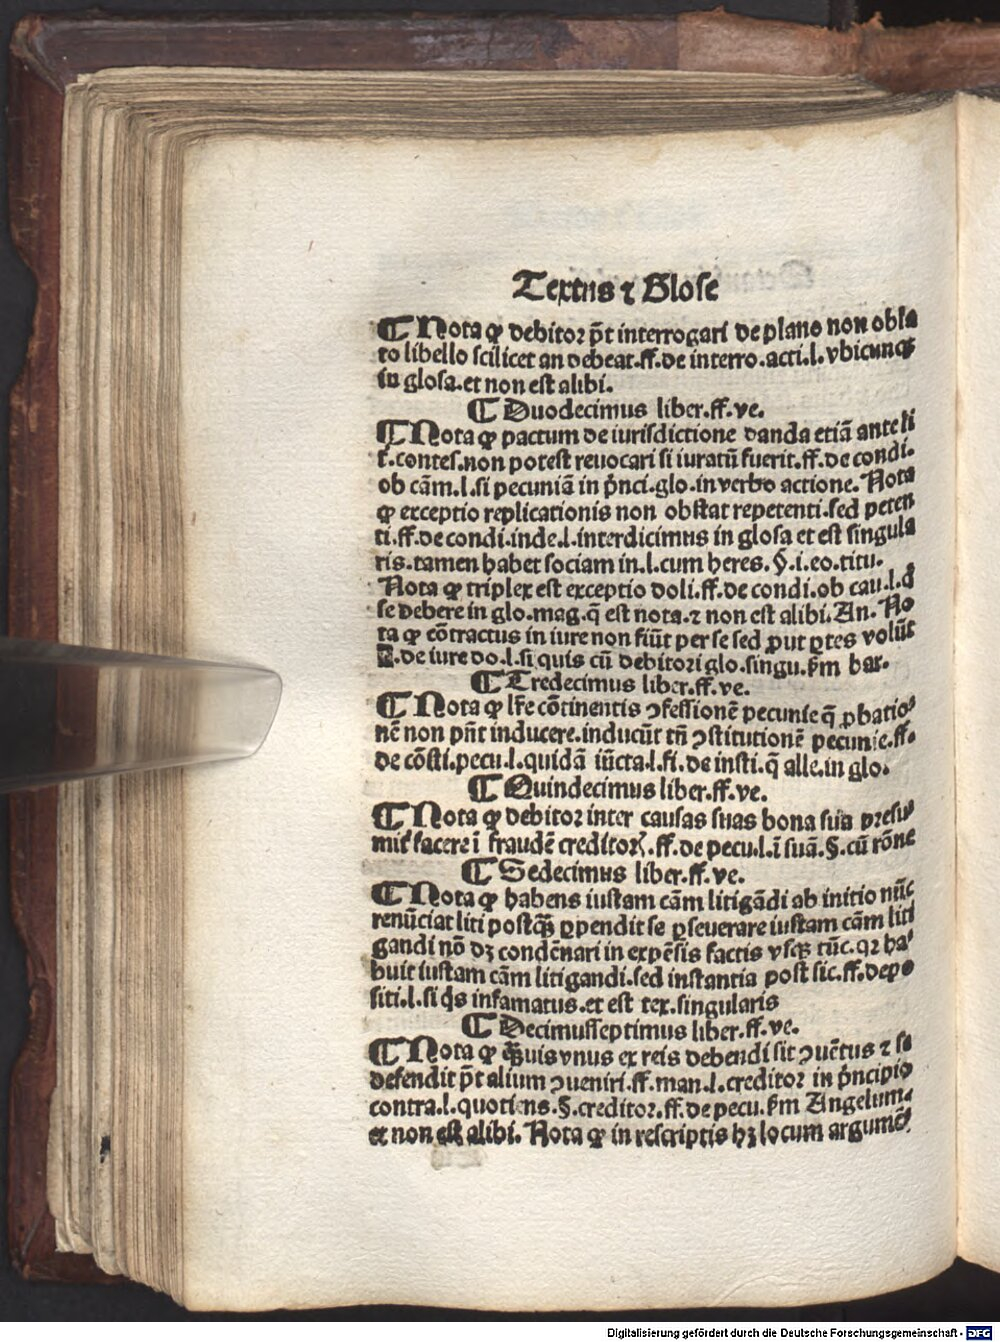 Textus ⁊ Glose
¶ Nota ꝙ debitor pōt interrogari de plano non obla
to libello scilicet an debeat.ff.de interro.acti.l.vbicunqꝫ
in glosa.et non est alibi.
¶ Duodecimus liber.ff.ve.
¶ Nota ꝙ pactum de iurisdictione danda etiā ante li
t̄.contes.non potest reuocari si iuratū fuerit.ff.de condi.
ob cām.l.si pecuniā in prīnci.glo.in verbo actione. Nota
ꝙ exceptio replicationis non obstat repetenti.sed peten
ti.ff.de condi.inde.l.interdicimus in glosa et est singula
ris.tamen habet sociam in.l.cum heres.§.i.eo.titu.
Nota ꝙ triplex est exceptio doli.ff.de condi.ob cau.l.q̄
se debere in glo.mag.q̄ est nota.⁊ non est alibi.An. No
ta ꝙ cōtractus in iure non fiūt per se sed ꝓut ꝑtes volūt
de iure do.l.si quis cū debitori glo.singu.ẜm bar.
¶ Tredecimus liber.ff.ve.
¶ Nota ꝙ lr̄e cōtinentis ꝯfessionē pecunie q̄ ꝓbatio
nē non pn̄t inducere.inducūt tn̄ ꝯstitutionē pecunie.ff.
de cōsti.pecu.l.quidā iūcta.l.fi.de insti.q̄ alle.in glo.
¶ Quindecimus liber.ff.ve.
¶ Nota ꝙ debitor inter causas suas bona sua presu
mit̄ facere ī fraudē creditoꝝ.ff.de pecu.l.ī suā.§.cū rōne
¶ Sedecimus liber.ff.ve.
¶ Nota ꝙ habens iustam cām litigādi ab initio nūc
renūciat liti postqꝫ̄ ꝑpendit se ꝑseuerare iustam cām liti
gandi nō dꝫ condēnari in expēsis factis vsqꝫ tūc.qꝛ ha
buit iustam cām litigandi.sed instantia post sic.ff.depo
siti.l.si q̄s infamatus.et est tex.singularis
¶ Decimusseptimus liber.ff.ve.
¶ Nota ꝙ qꝫ̄uis vnus ex reis debendi sit ꝯuētus ⁊ se
defendit pōt alium ꝯueniri.ff.man.l.creditor in prīncipio
contra.l.quotiens.§.creditor.ff.de pecu.ẜm Angelum.
et non est alibi. Nota ꝙ in rescriptis hꝫ locum argumē
Digitalisierung gefördert durch die Deutsche Forschungsgemeinschaft - DFG